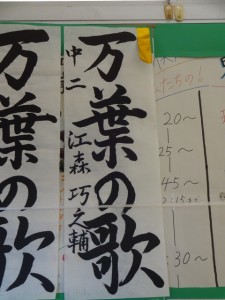 万葉の歌
中二 江森巧之輔
万葉の歌
たちの
20～
25～
45～
30～